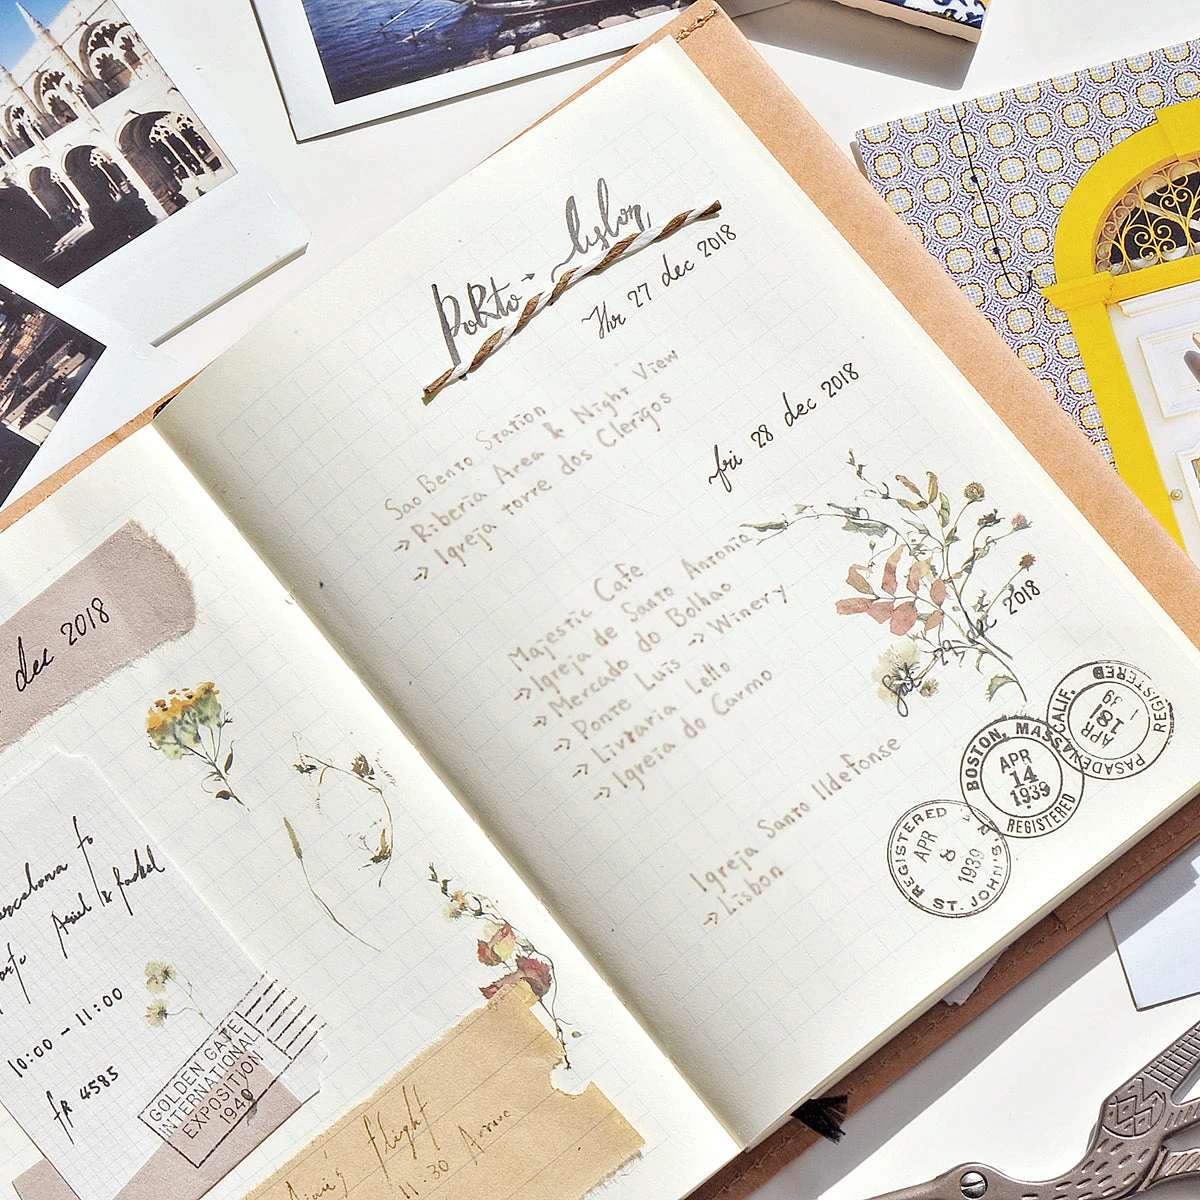 dec 2018
Barcelona to
Ariel & Rachel
10:00 - 11:00
FR 4585
GOLDEN GATE
INTERNATIONAL
EXPOSITION
1940
flight
11:30 Arrive
Porto - lisbon
Thr 27 dec 2018
Sao Bento Station
→ Riberia Area & Night View
→ Igreja torre dos Clerigos
fri 28 dec 2018
Majestic Cafe
→ Igreja de Santo Antonia
→ Mercado do Bolhao
→ Ponte Luis → Winery
→ Livraria Lello
→ Igreia do Carmo
Sat 29 dec 2018
Igreja Santo Ildefonse
→ Lisbon
REGISTERED
APR
8
1939
ST. JOHN'S,
BOSTON, MASS.
APR
14
1939
REGISTERED
PASADENA CALIF.
APR 18
1939
REGISTERED